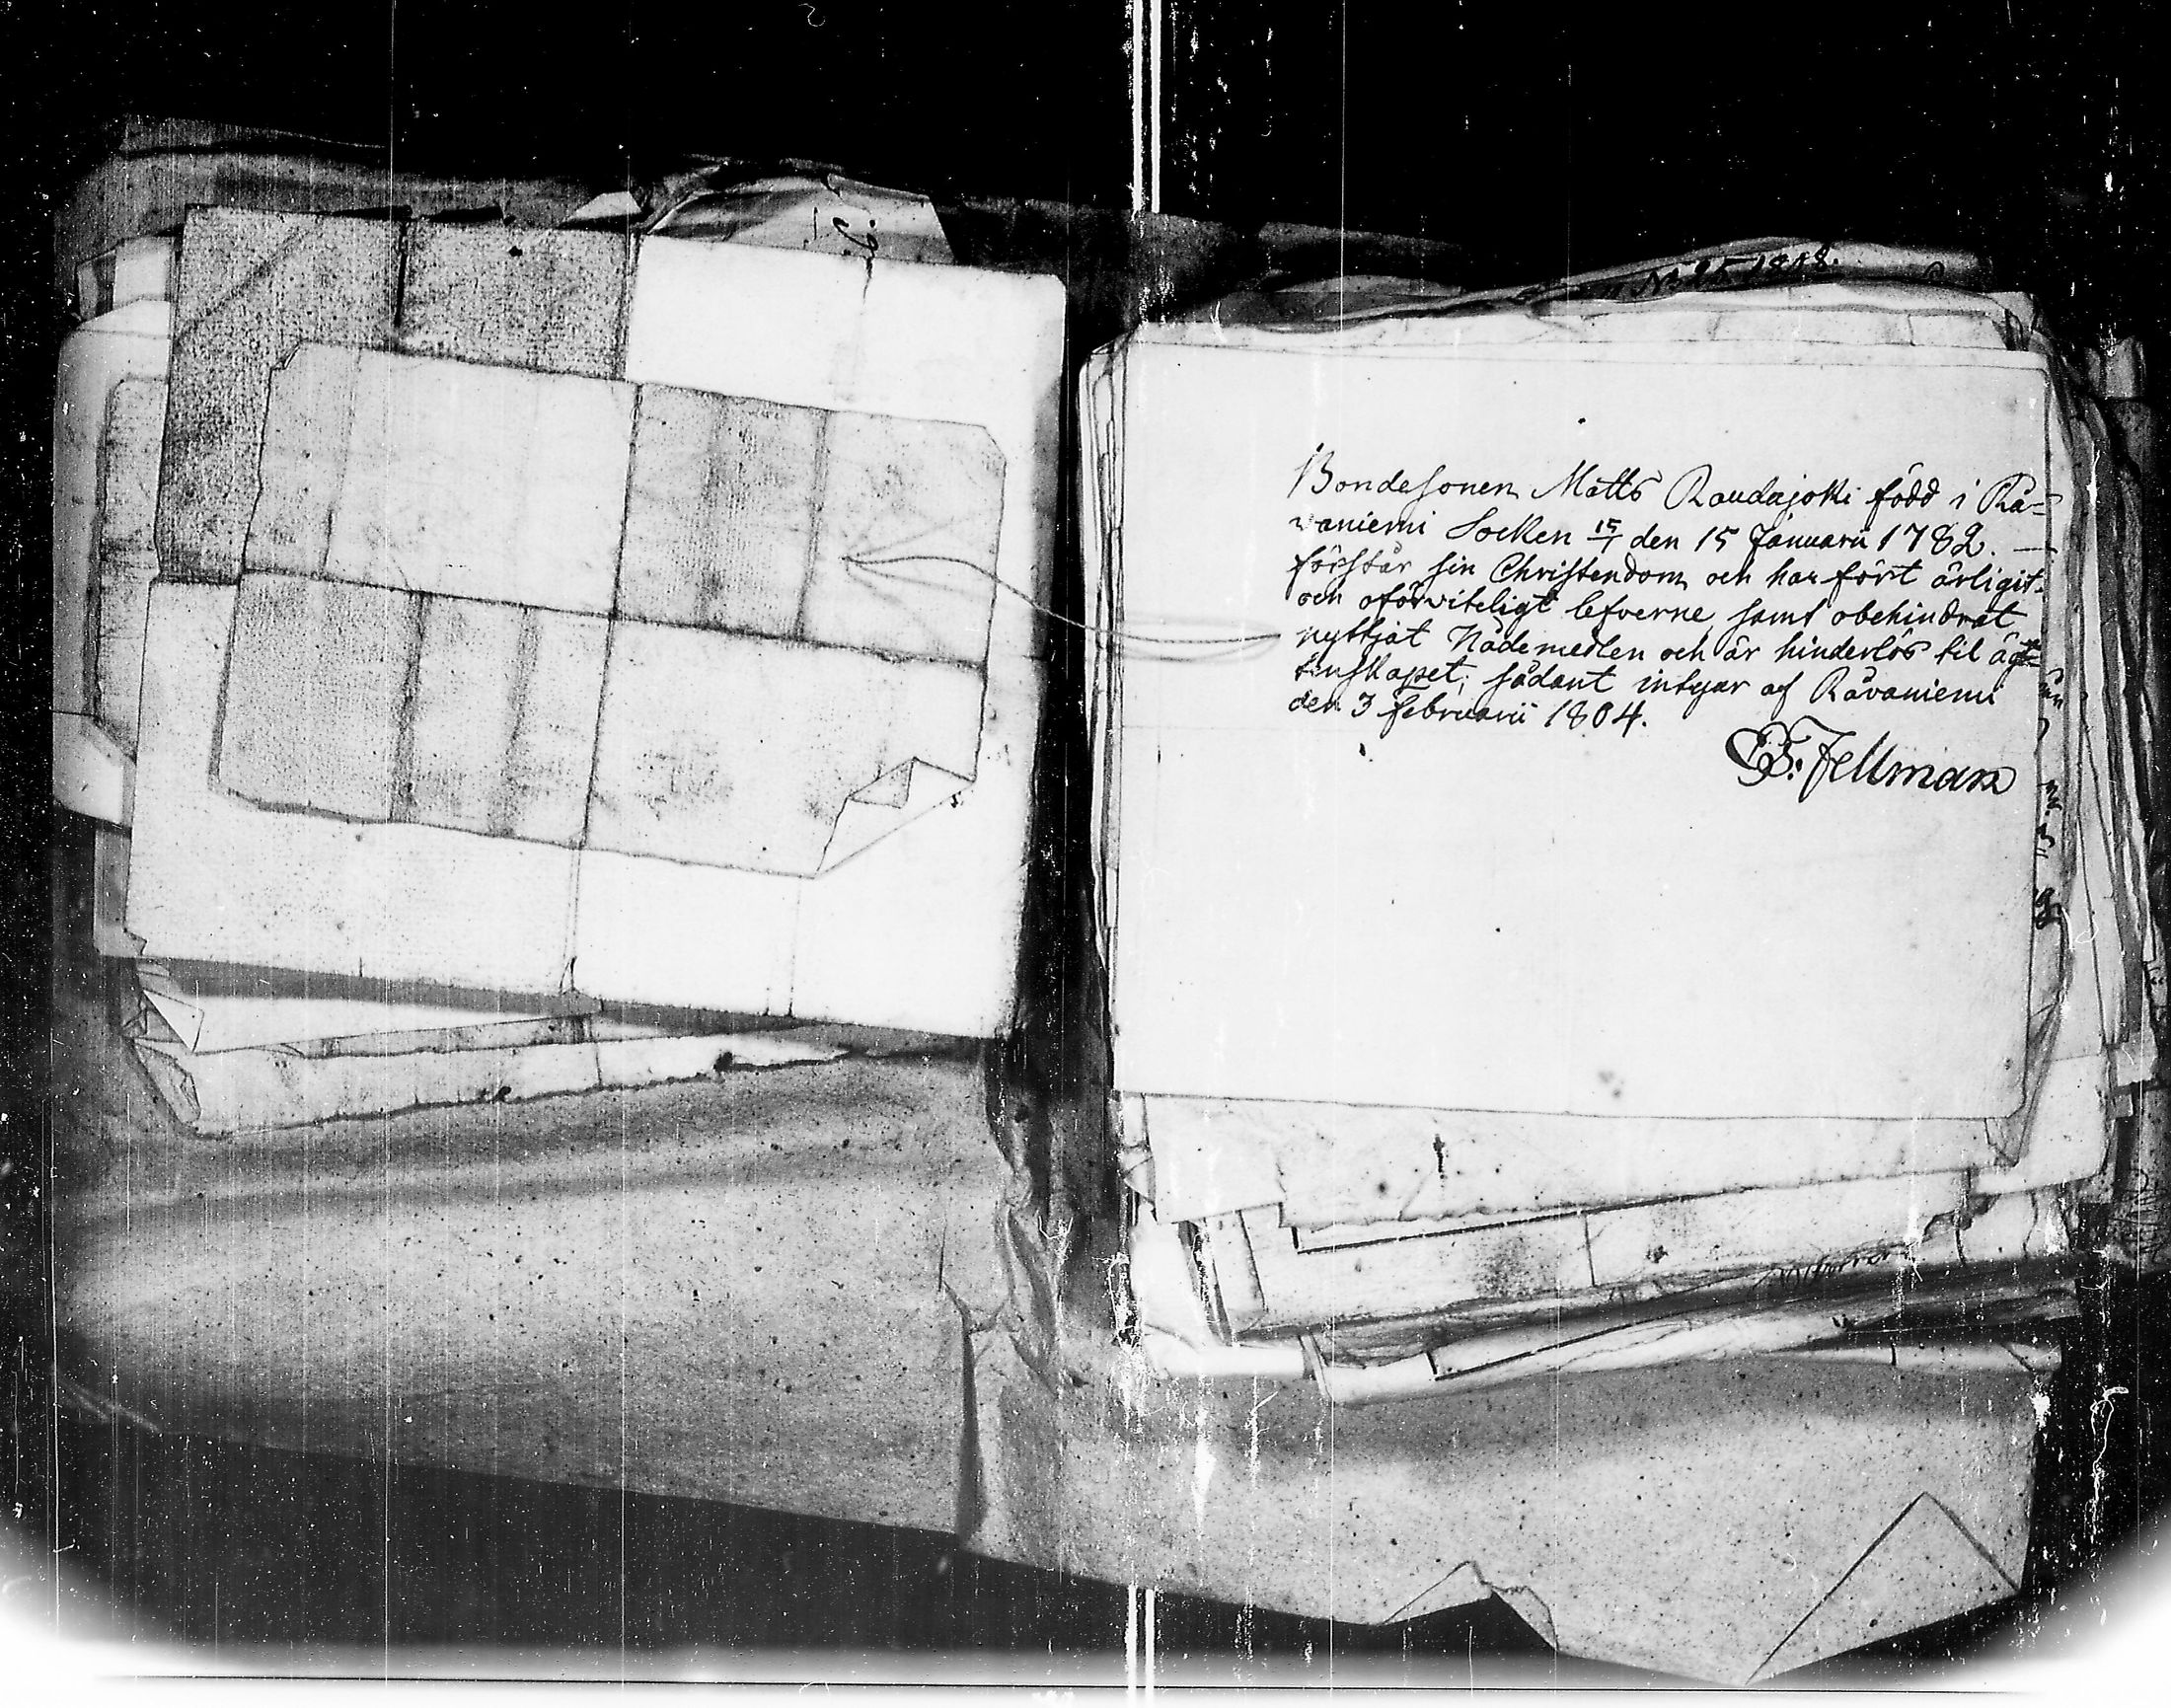 No 25 1808.
Bondesonen Matts Raudajoki född i Rå=
vaniemi Socken 15/1 den 15 Januarii 1782. —
förstår sin Christendom och har fört ärligit
och oförviteligt lefverne samt obehindrat
nyttjat Nådemedlen och är hinderlös til ägt=
enskapet; sådant intygar af Råvaniemi
den 3 Februarii 1804.
E. Fellman